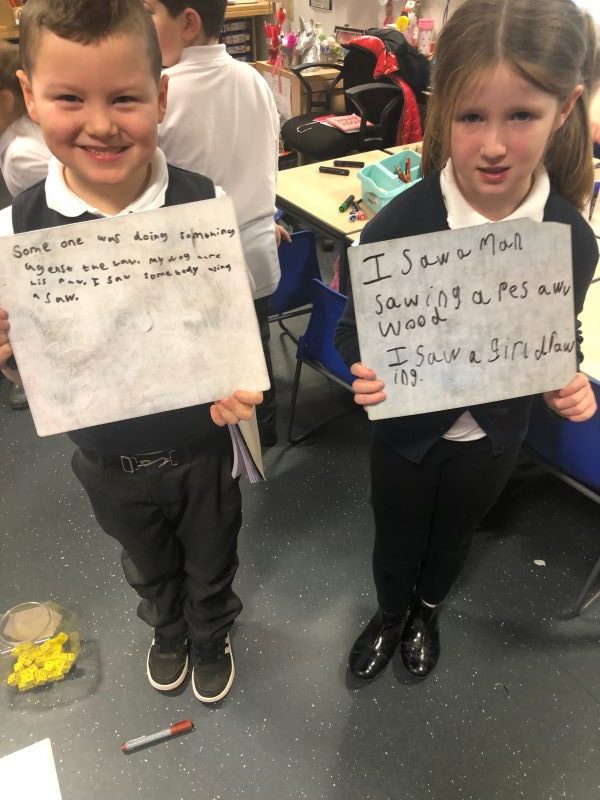 Some one was doing something
agenst the law. My dog hurt
his paw. I saw somebody using
a saw.
I saw a man
sawing a pes awv
wood
I saw a girl draw
ing.